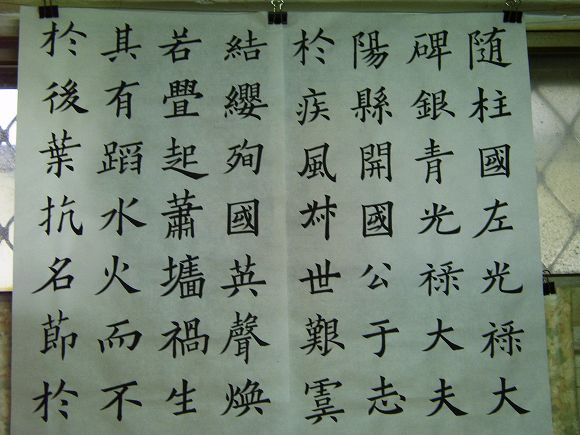 随柱國左光祿大
碑銀青光祿大夫
陽縣開國公于志
於疾風叔世艱虞
結纓殉國英聲煥
若舋起蕭墻禍生
其有蹈水火而不
於後葉抗名節於